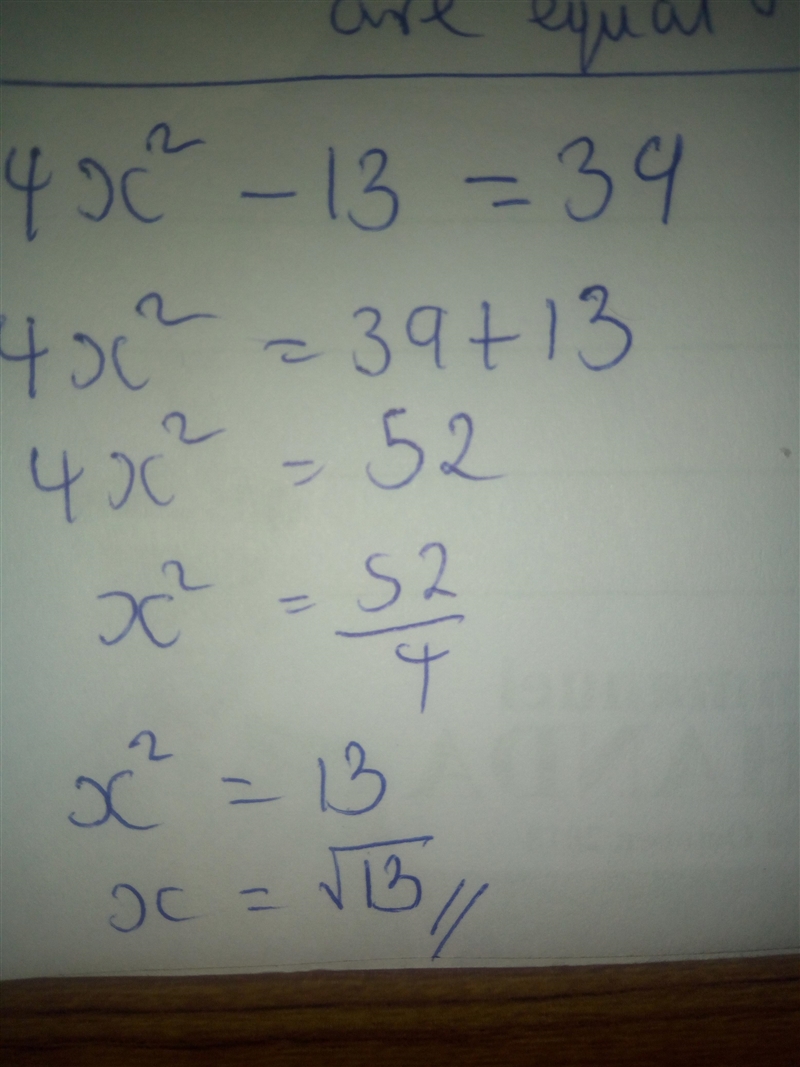 are equal
4x² - 13 = 39
4x² = 39 + 13
4x² = 52
x² = 52/4
x² = 13
x = √13 //